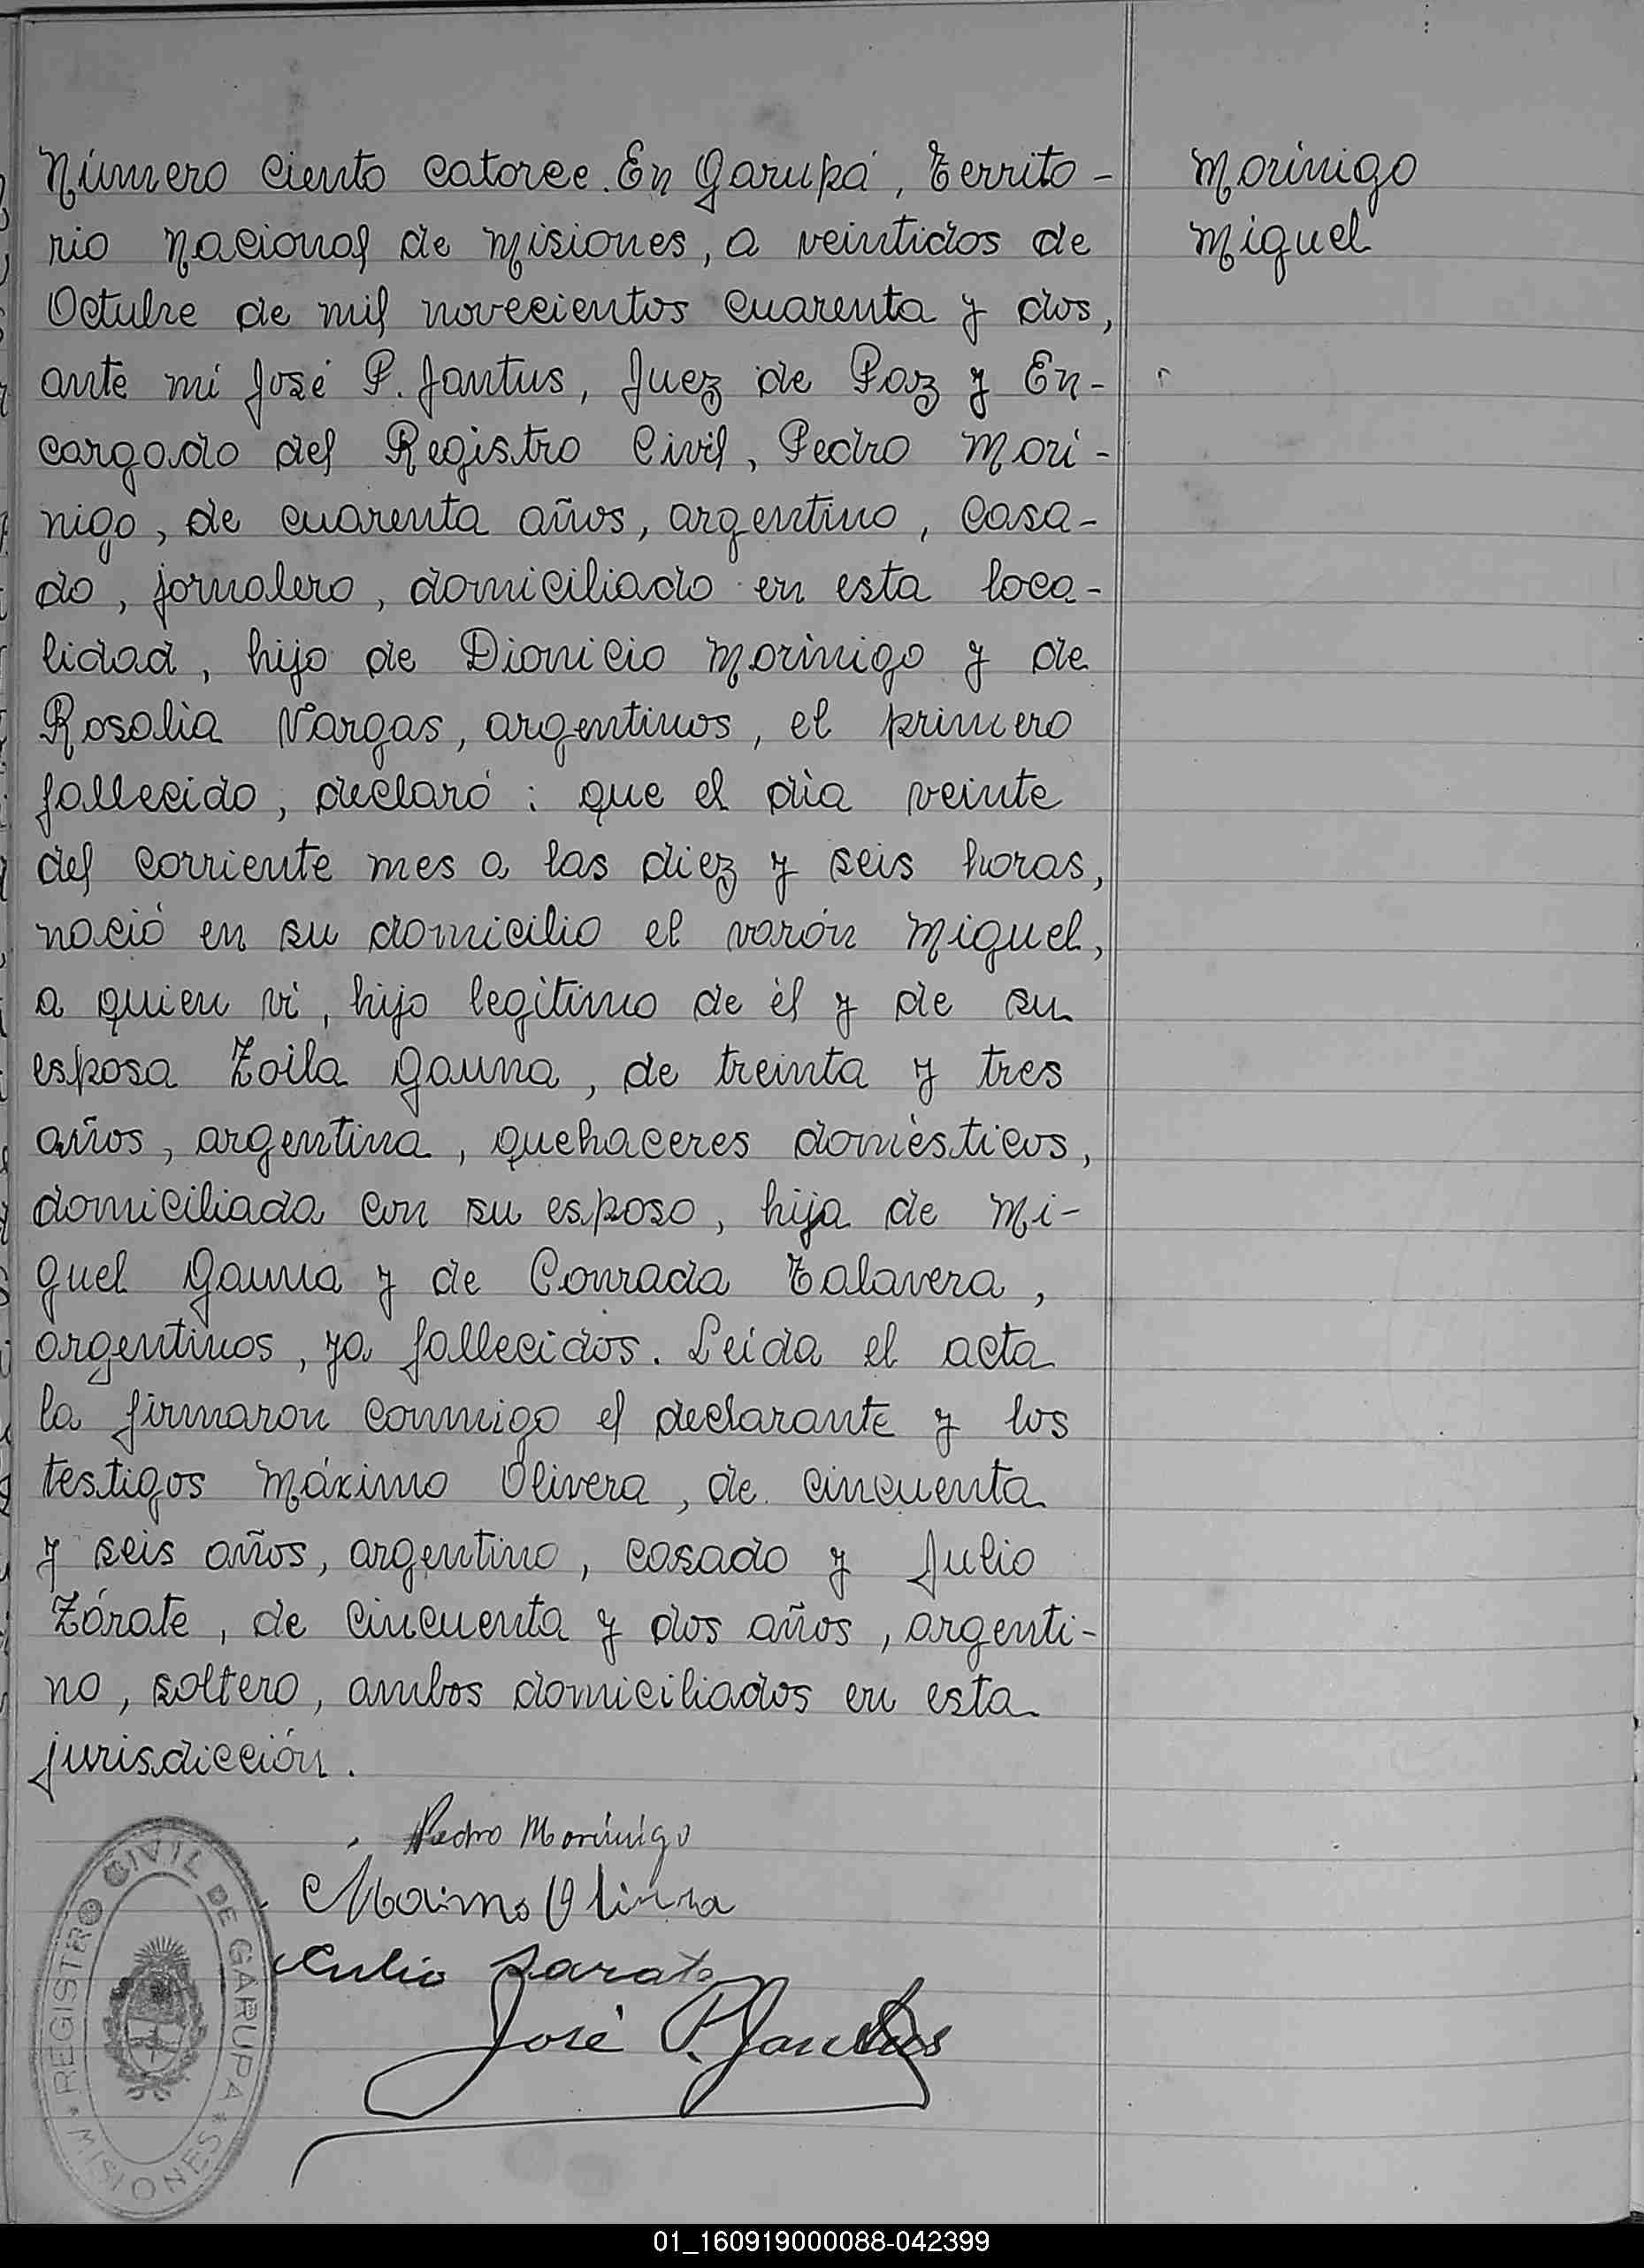 Número ciento catorce. En Garupá, Territo-
rio Nacional de Misiones, a veintidos de
Octubre de mil novecientos cuarenta y dos,
ante mi José P. Jantus, Juez de Paz y En-
cargado del Registro Civil, Pedro Morí-
nigo, de cuarenta años, argentino, casa-
do, jornalero, domiciliado en esta loca-
lidad, hijo de Dionicio Morínigo y de
Rosalía Vargas, argentinos, el primero
fallecido, declaró: que el día veinte
del corriente mes a las diez y seis horas,
nació en su domicilio el varón Miguel,
a quien ví, hijo legítimo de él y de su
esposa Zoila Gauna, de treinta y tres
años, argentina, quehaceres domésticos,
domiciliada con su esposo, hija de Mi-
guel Gauna y de Conrada Talavera,
argentinos, ya fallecidos. Leída el acta
la firmaron conmigo el declarante y los
testigos Máximo Olivera, de cincuenta
y seis años, argentino, casado y Julio
Zárate, de cincuenta y dos años, argenti-
no, soltero, ambos domiciliados en esta
jurisdicción.
Morínigo
Miguel
Pedro Morinigo
Maimo Olivera
Julio Sarate
José P. Jantus
REGISTRO CIVIL DE GARUPA
* MISIONES *
01_160919000088-042399